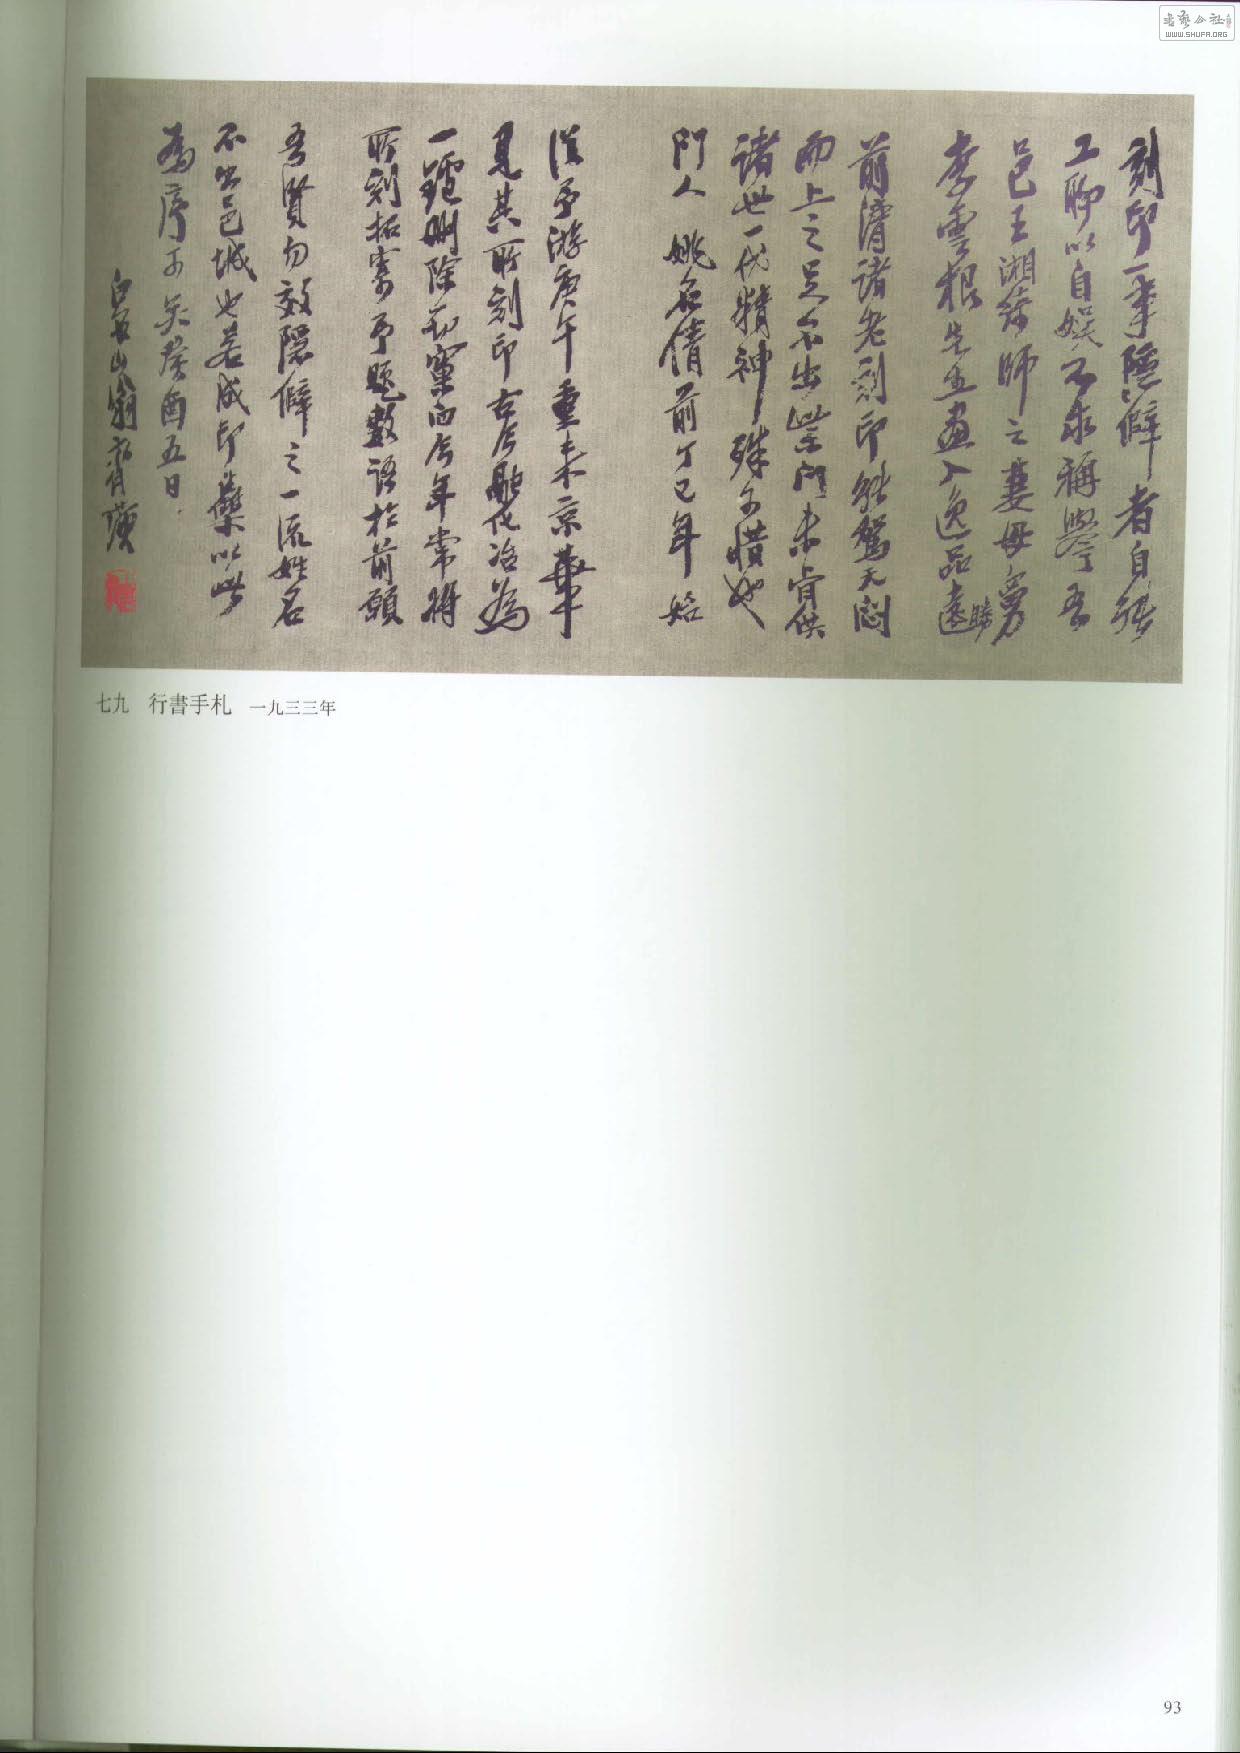 刻印一事隱僻者自稱
工聊以自娱不求稱譽吾
邑王湘綺師之妻母舅
李雲根先生畫入逸品遠勝
前清諸老刻印能駕无悶
而上之足不出柴門未肯供
諸世一代精神殊可惜也
門人 姚石倩前丁巳年始
從予游庚午重來京華
見其所刻印古今融化冶為
一爐刪除前窠臼今年常將
所刻拓寄予題數語於前願
吾賢勿效隱僻之一流姓名
不出邑城也若成印藁以此
為序可矣癸酉五日
白石山翁齊璜
七九 行書手札 一九三三年
93
書藝公社
WWW.SHUFA.ORG